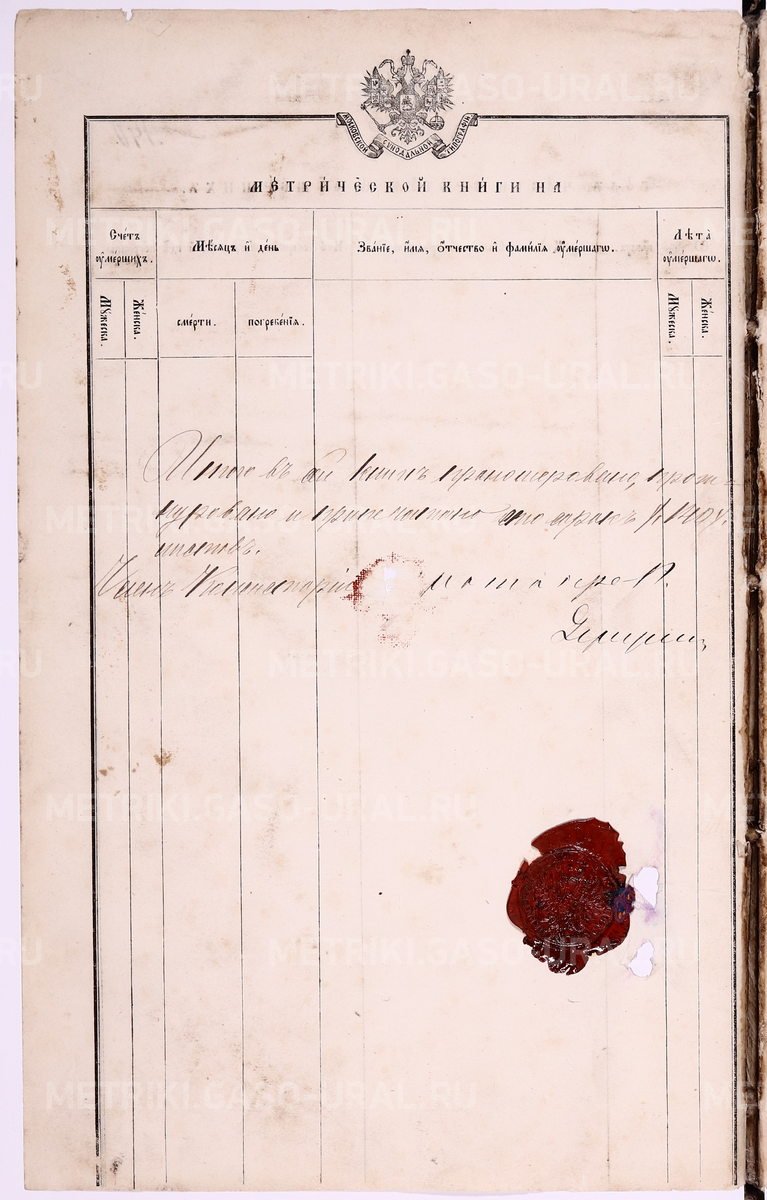 МОСКОВСКОЙ СѴНОДАЛЬНОЙ ТИПОГРАФІИ
МЕТРИ́ЧЕСКОЙ КНИ́ГИ НА
Сче́тъ ᲂу҆ме́ршихъ.
Мѣ́сѧцъ и҆ де́нь
Зва́нїе, и҆́мѧ, ѻ҆́тчество и҆ фами́лїѧ ᲂу҆ме́ршагѡ.
Лѣ̑та ᲂу҆ме́ршагѡ.
Мꙋ́жеска.
Же́нска.
сме́рти.
погребе́нїѧ.
Мꙋ́жеска.
Же́нска.
Итого въ сей книгѣ пронумеровано, прош-
нуровано и припечатано сто сорокъ /140/
листовъ.
Членъ Консисторіи
METRIKI.GASO-URAL.RU